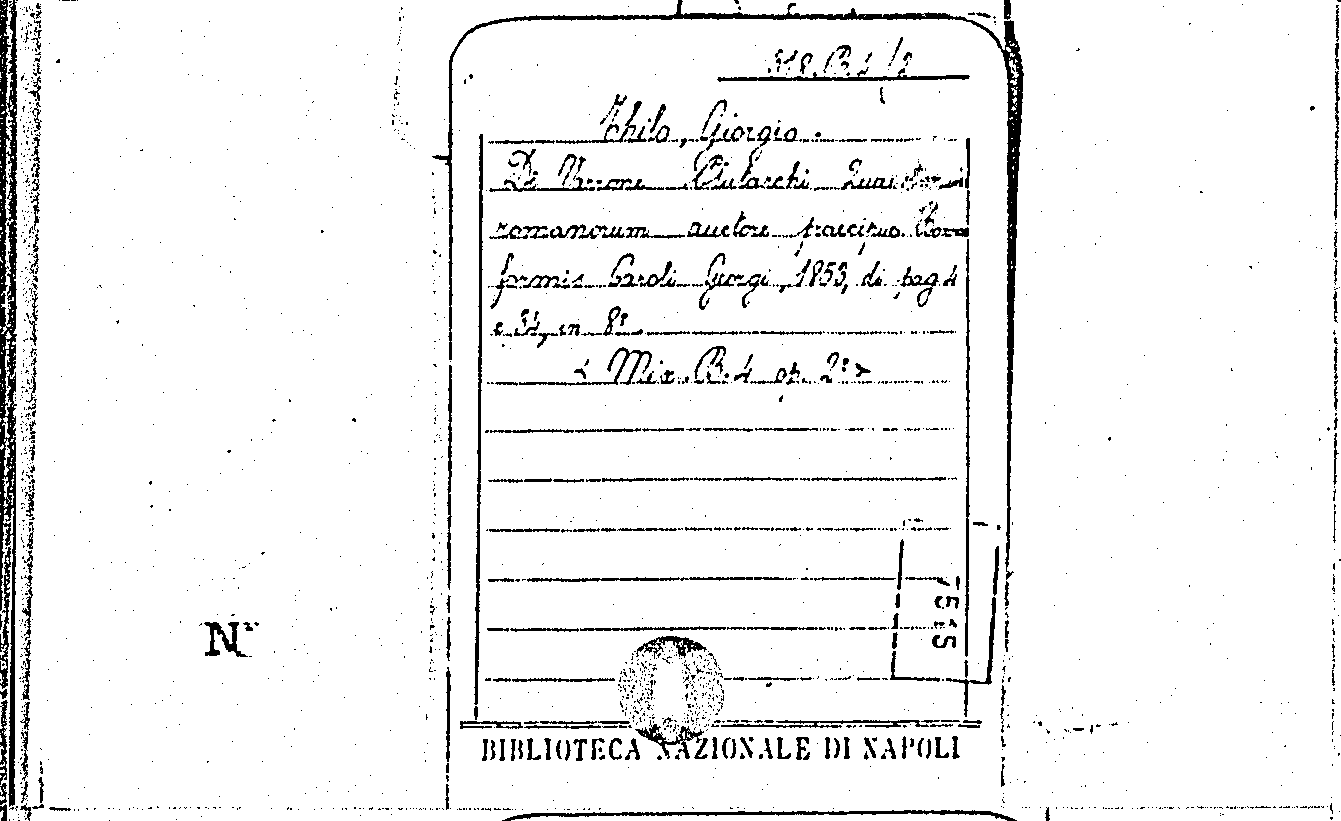 518.B.4/2
Thilo, Giorgio.
De Varrone Plutarchi Quaestionum
romanorum auctore praecipuo. Bonnae
formis Caroli Georgi, 1853, di pag 4
e 34, in 8º.
< Mix. B. 4 op. 2º >
7515
Nº
BIBLIOTECA NAZIONALE DI NAPOLI